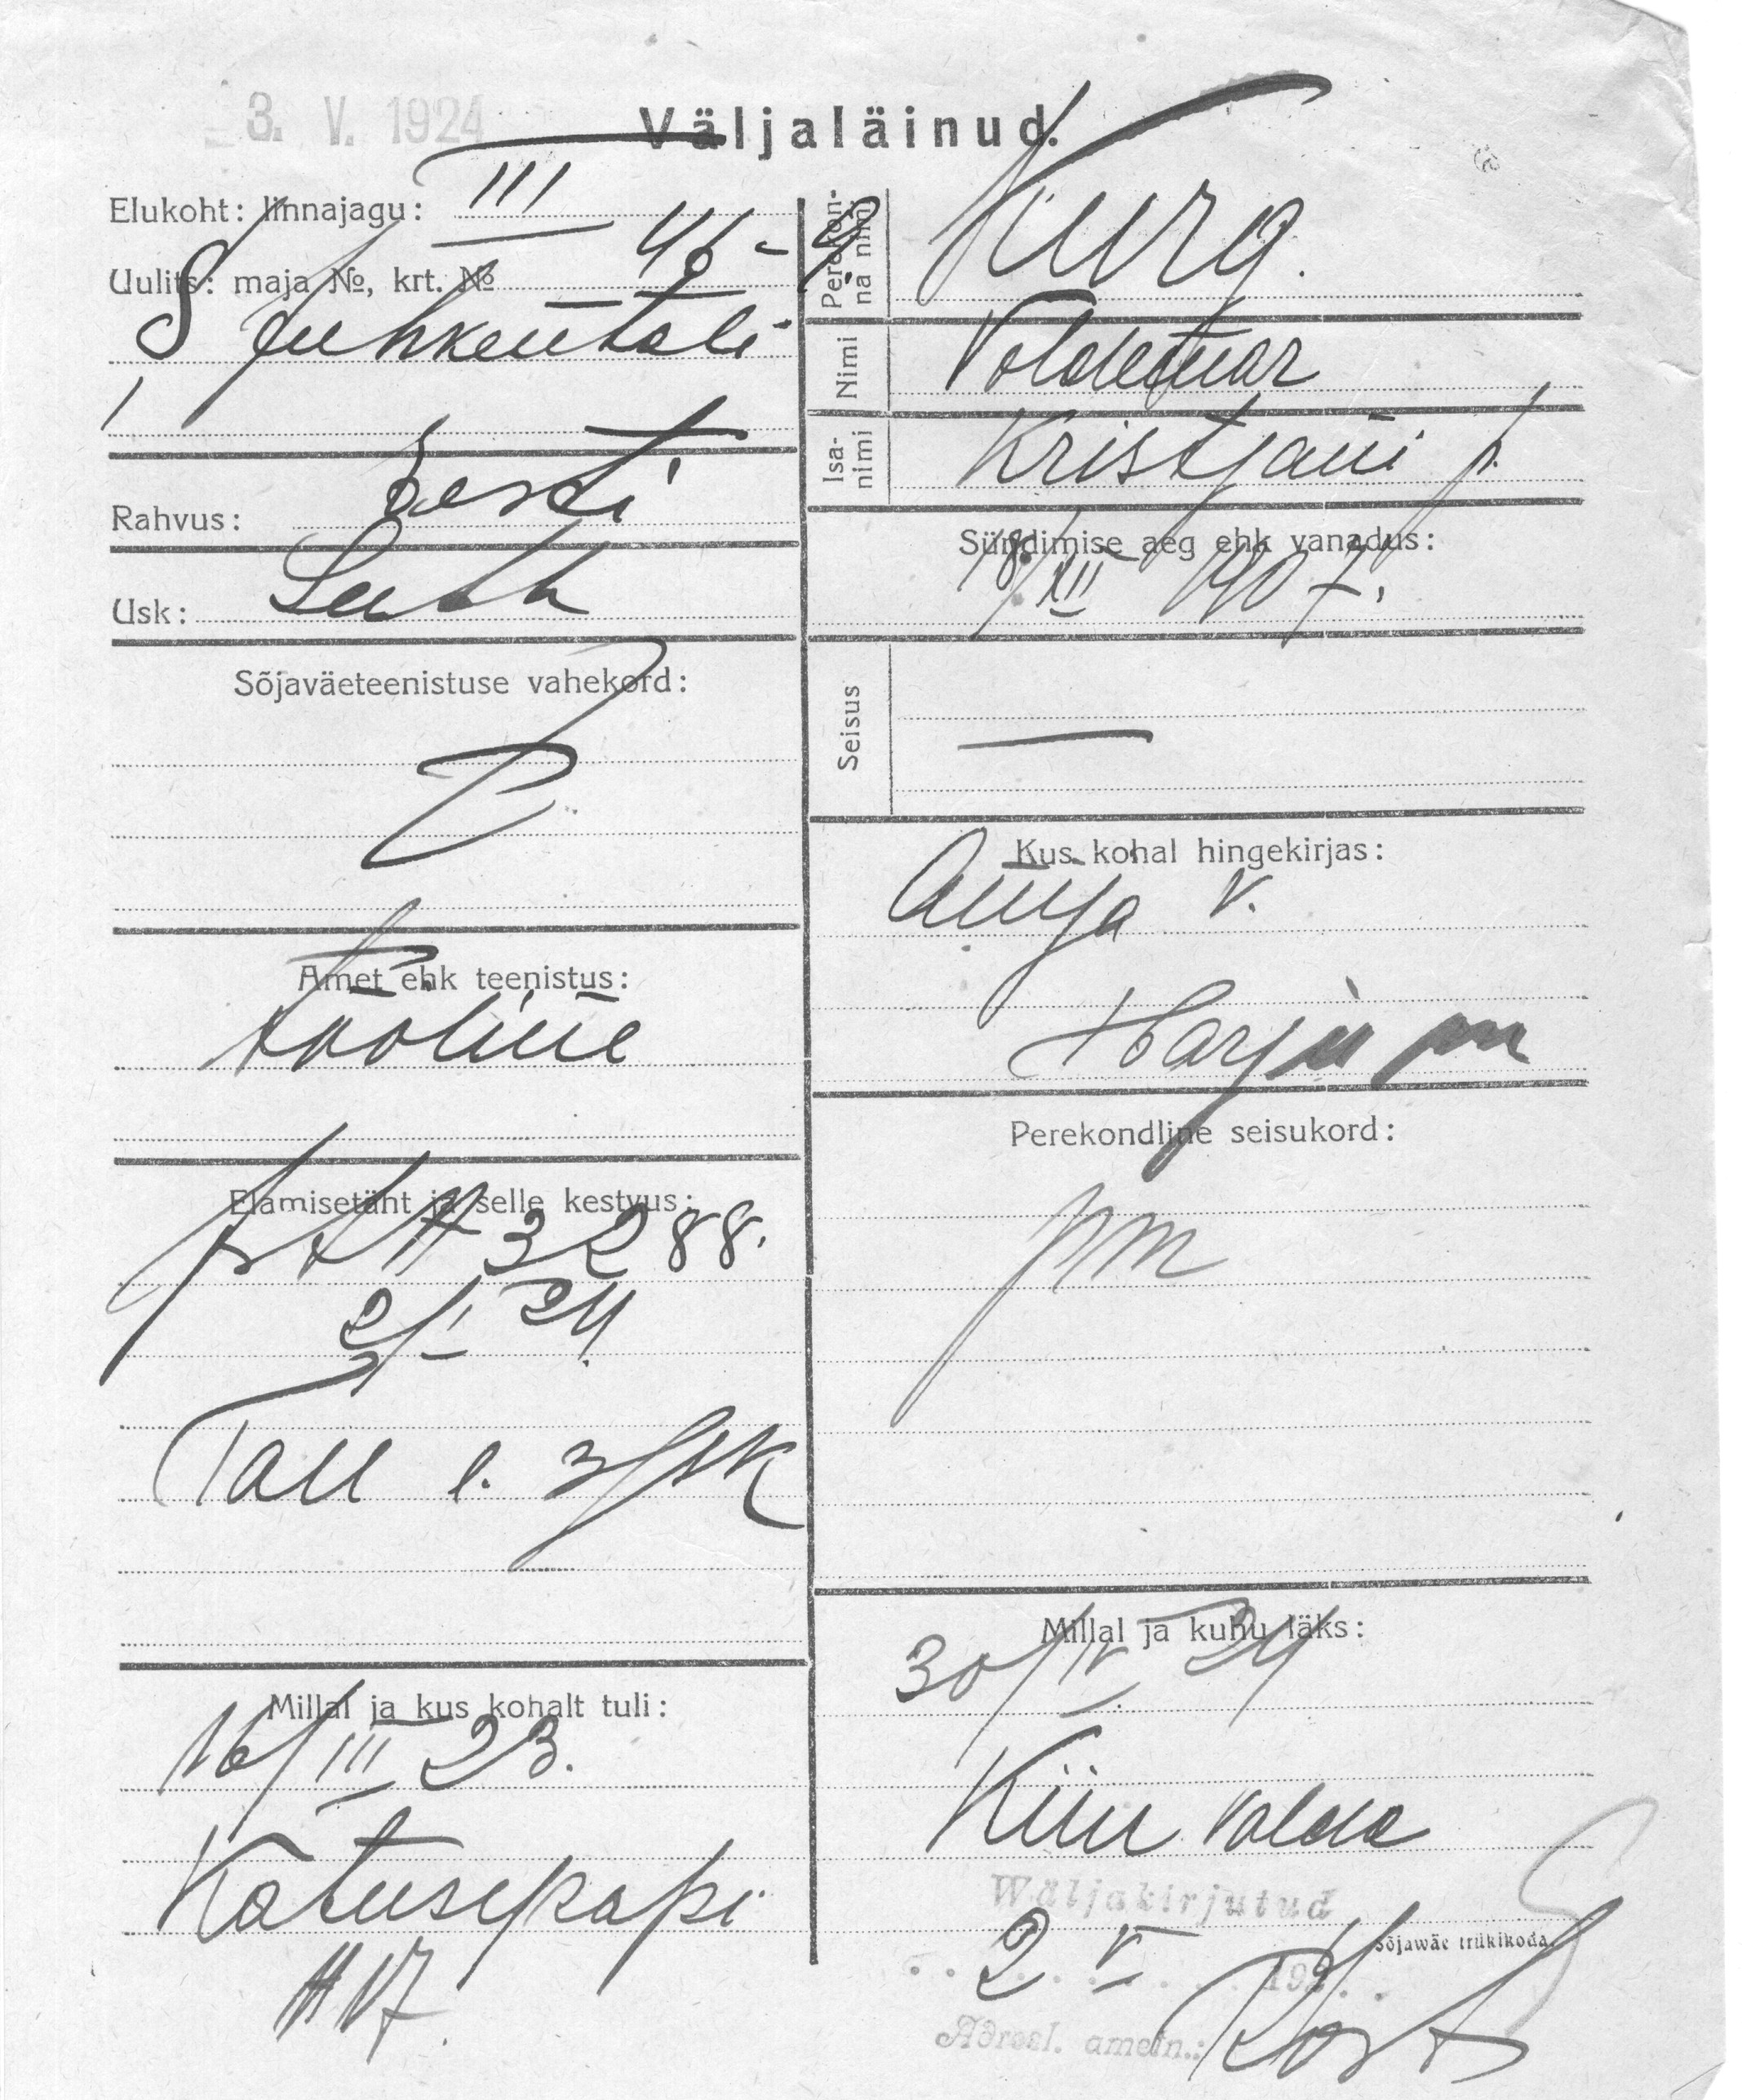 3. V. 1924
Väljaläinud.
Elukoht: linnajagu: III
Uulits: maja №, krt. № 46-
S Juhkentali
Rahvus: Eesti
Usk: Luth
Sõjaväeteenistuse vahekord:
Amet ehk teenistus:
tööline
Elamisetäht ja selle kestvus:
3288.
2/I 24
Tall l. 3/jsk
Millal ja kus kohalt tuli:
16/III 23.
Katusepapi
№ 17
Perekon-
na nimi
Kurg.
Nimi
Voldemar
Isa-
nimi
Kristjani p.
Sündimise aeg ehk vanadus:
8/XII 1907.
Seisus
—
Kus kohal hingekirjas:
Anija v.
Harju m
Perekondline seisukord:
pm
Millal ja kuhu läks:
30/IV 24
Kiiu valda
Wäljakirjutud
2 V 192
Sõjawäe trükikoda.
Adresl. ametn.: